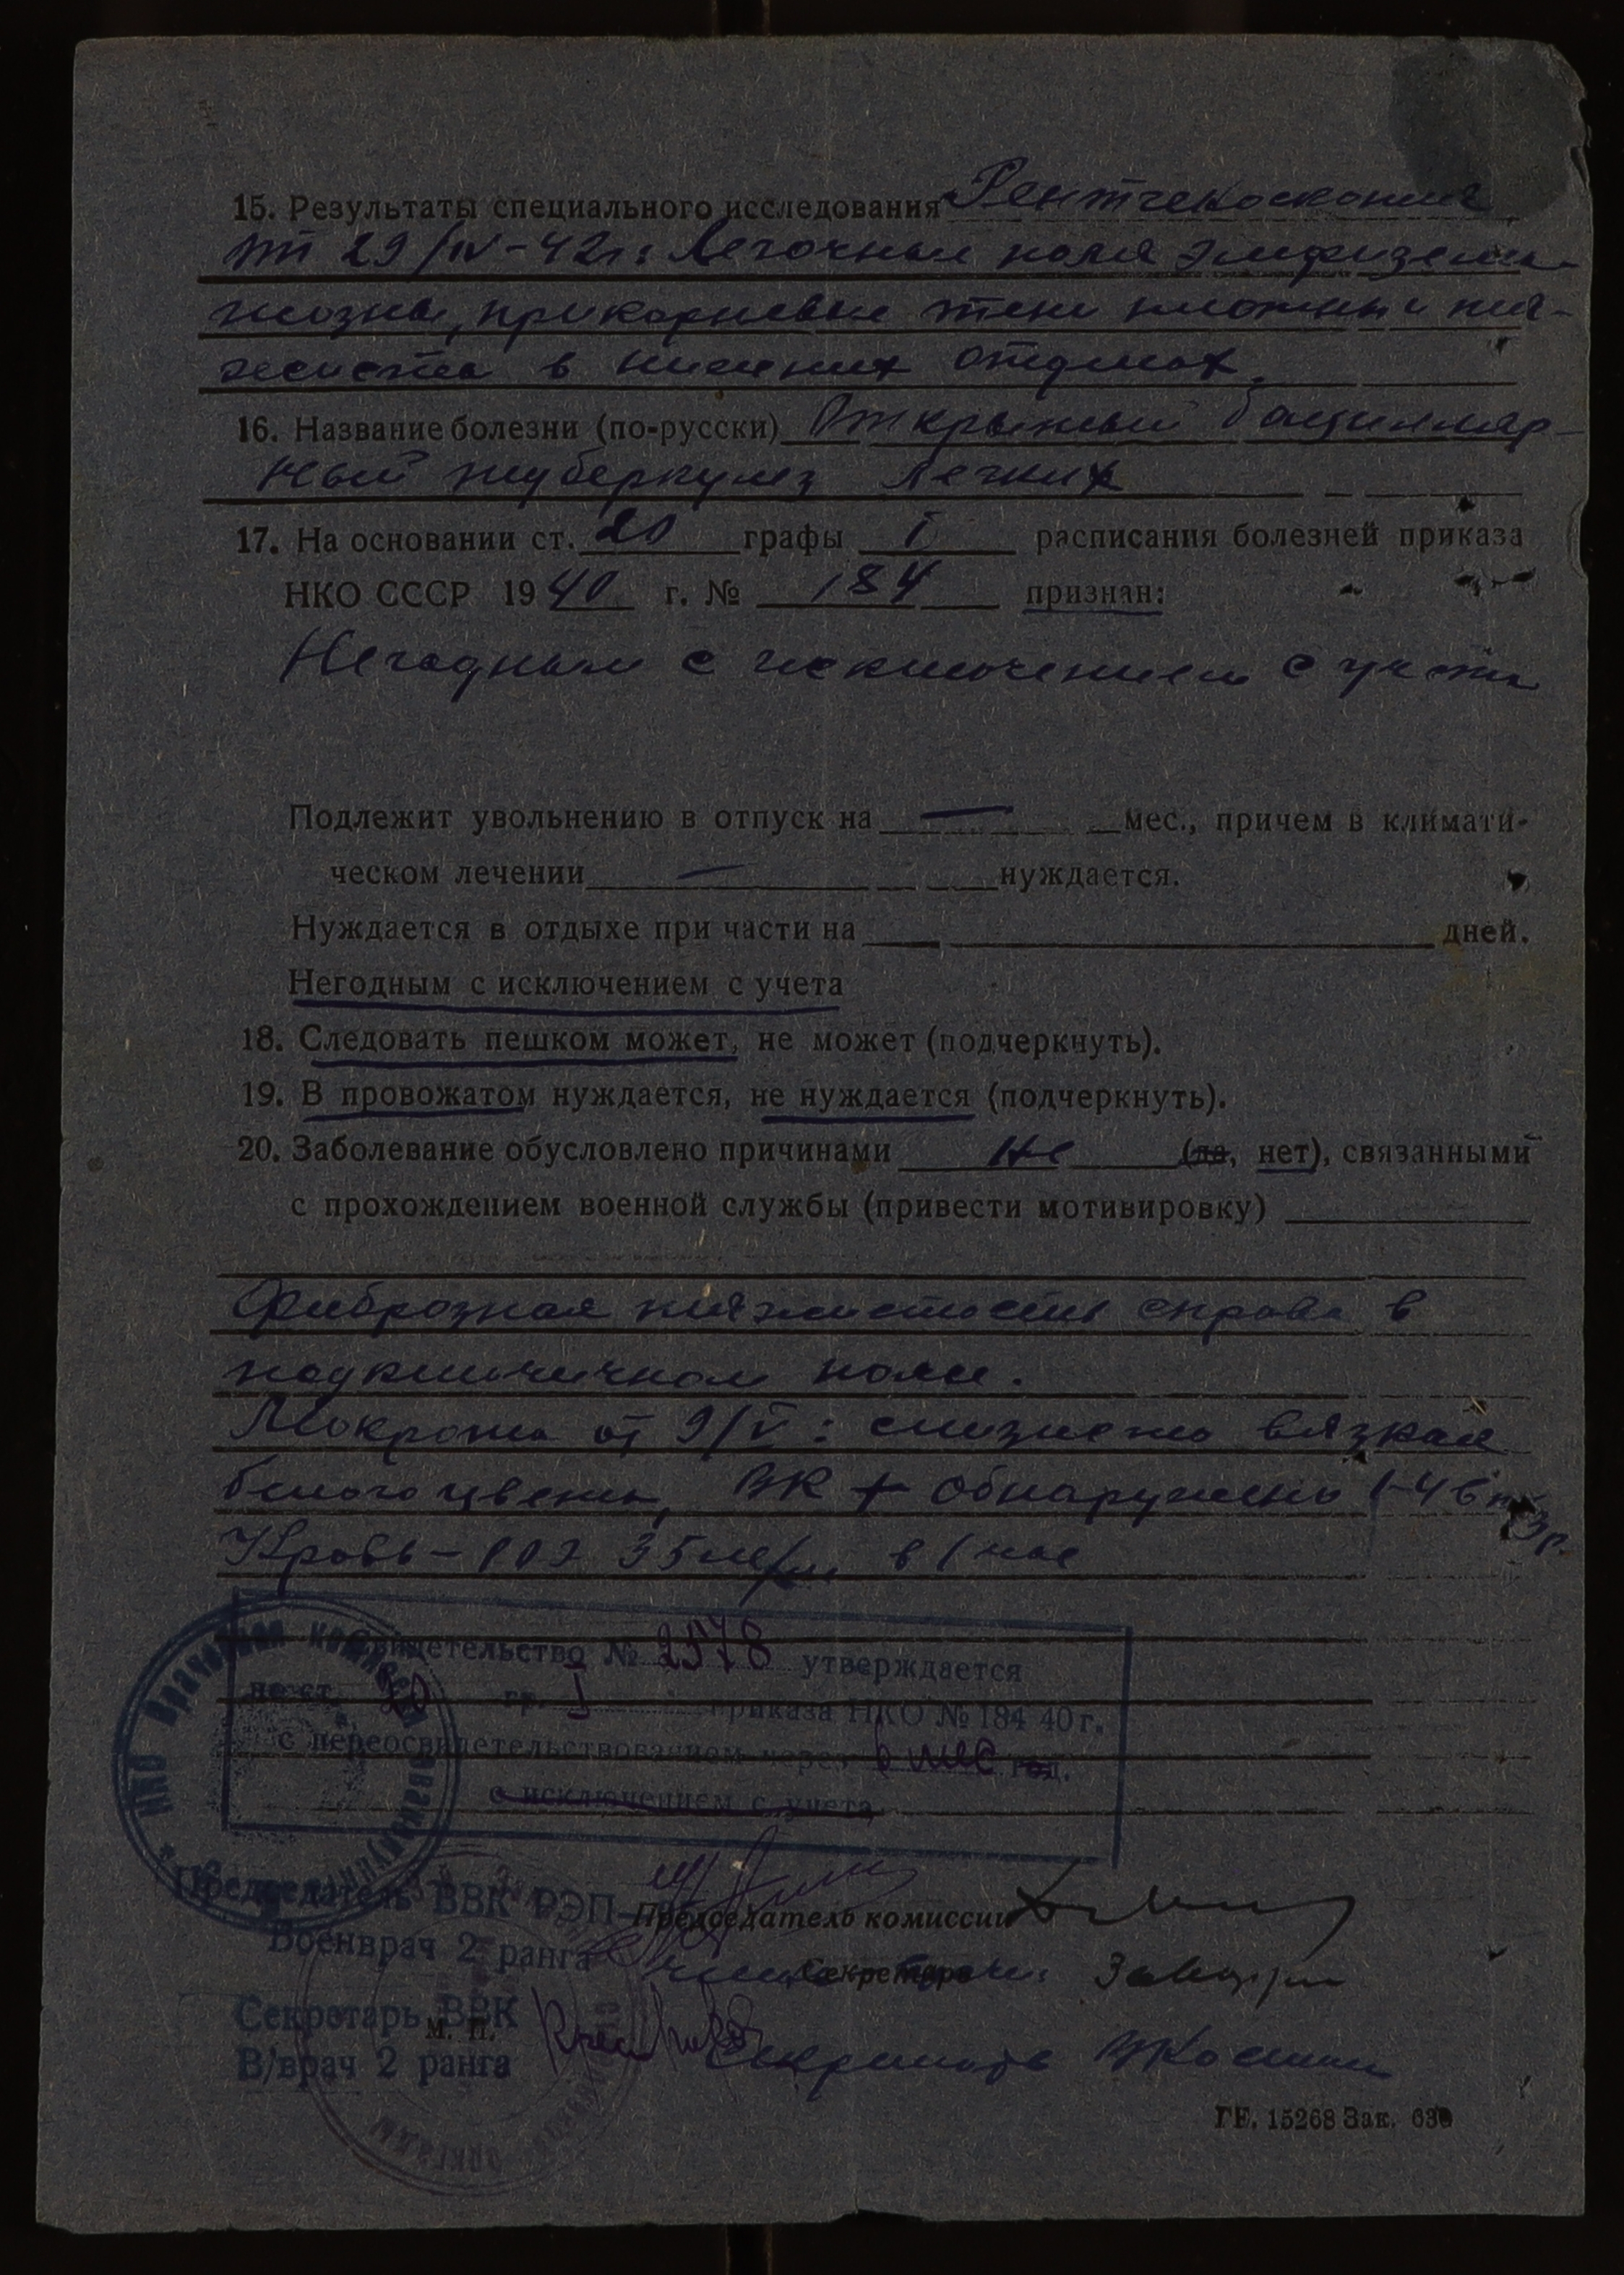 15. Результаты специального исследования Рентгеноскопия
от 29/IV-42г: Легочные поля эмфизема-
тозны, прикорневые тени плотны и тя-
жисты в нижних отделах.
16. Название болезни (по-русски) Открытый бациллар-
ный туберкулез легких
17. На основании ст. 20 графы I расписания болезней приказа
НКО СССР 1940 г. № 184 признан:
Негодным с исключением с учета
Подлежит увольнению в отпуск на — мес., причем в климати-
ческом лечении — нуждается.
Нуждается в отдыхе при части на дней.
Негодным с исключением с учета
18. Следовать пешком может, не может (подчеркнуть).
19. В провожатом нуждается, не нуждается (подчеркнуть).
20. Заболевание обусловлено причинами не (да, нет), связанными
с прохождением военной службы (привести мотивировку)
Фиброзная тяжистость справа в
подключичном поле.
Мокрота от 9/V: слизисто вязкая
белого цвета, ВК + обнаружены 1-4 в п/зр.
Кровь – РОЭ 35 м/м в 1 час
Свидетельство № 2578 утверждается
по ст. 20 гр. I приказа НКО № 184 40 г.
с переосвидетельствованием через 6 мес год.
с исключением с учета
НКО Врачебная комиссия
Председатель ВВК РЭП
Председатель комиссии
Военврач 2 ранга
Секретарь
Секретарь ВВК
М. П.
В/врач 2 ранга
Секретарь
ГЕ. 15268 Зак. 630